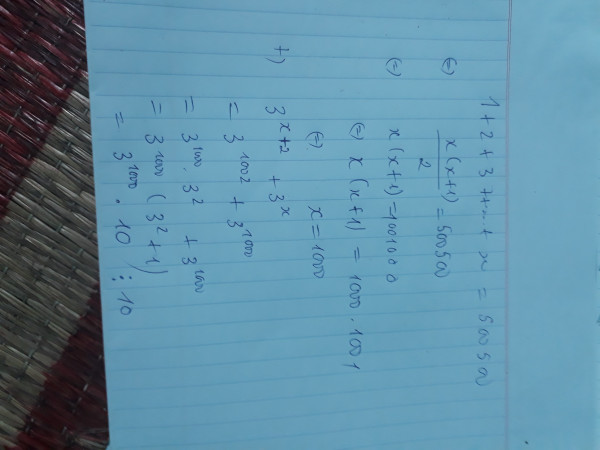 1+2+3+...+x = 500500
(=) x(x+1)/2 = 500500
(=) x(x+1)=1001000
(=) x(x+1) = 1000.1001
(=) x=1000
+) 3^{x+2} + 3^x
= 3^{1002} + 3^{1000}
= 3^{1000}.3^2 + 3^{1000}
= 3^{1000} (3^2+1)
= 3^{1000}.10 ⋮10